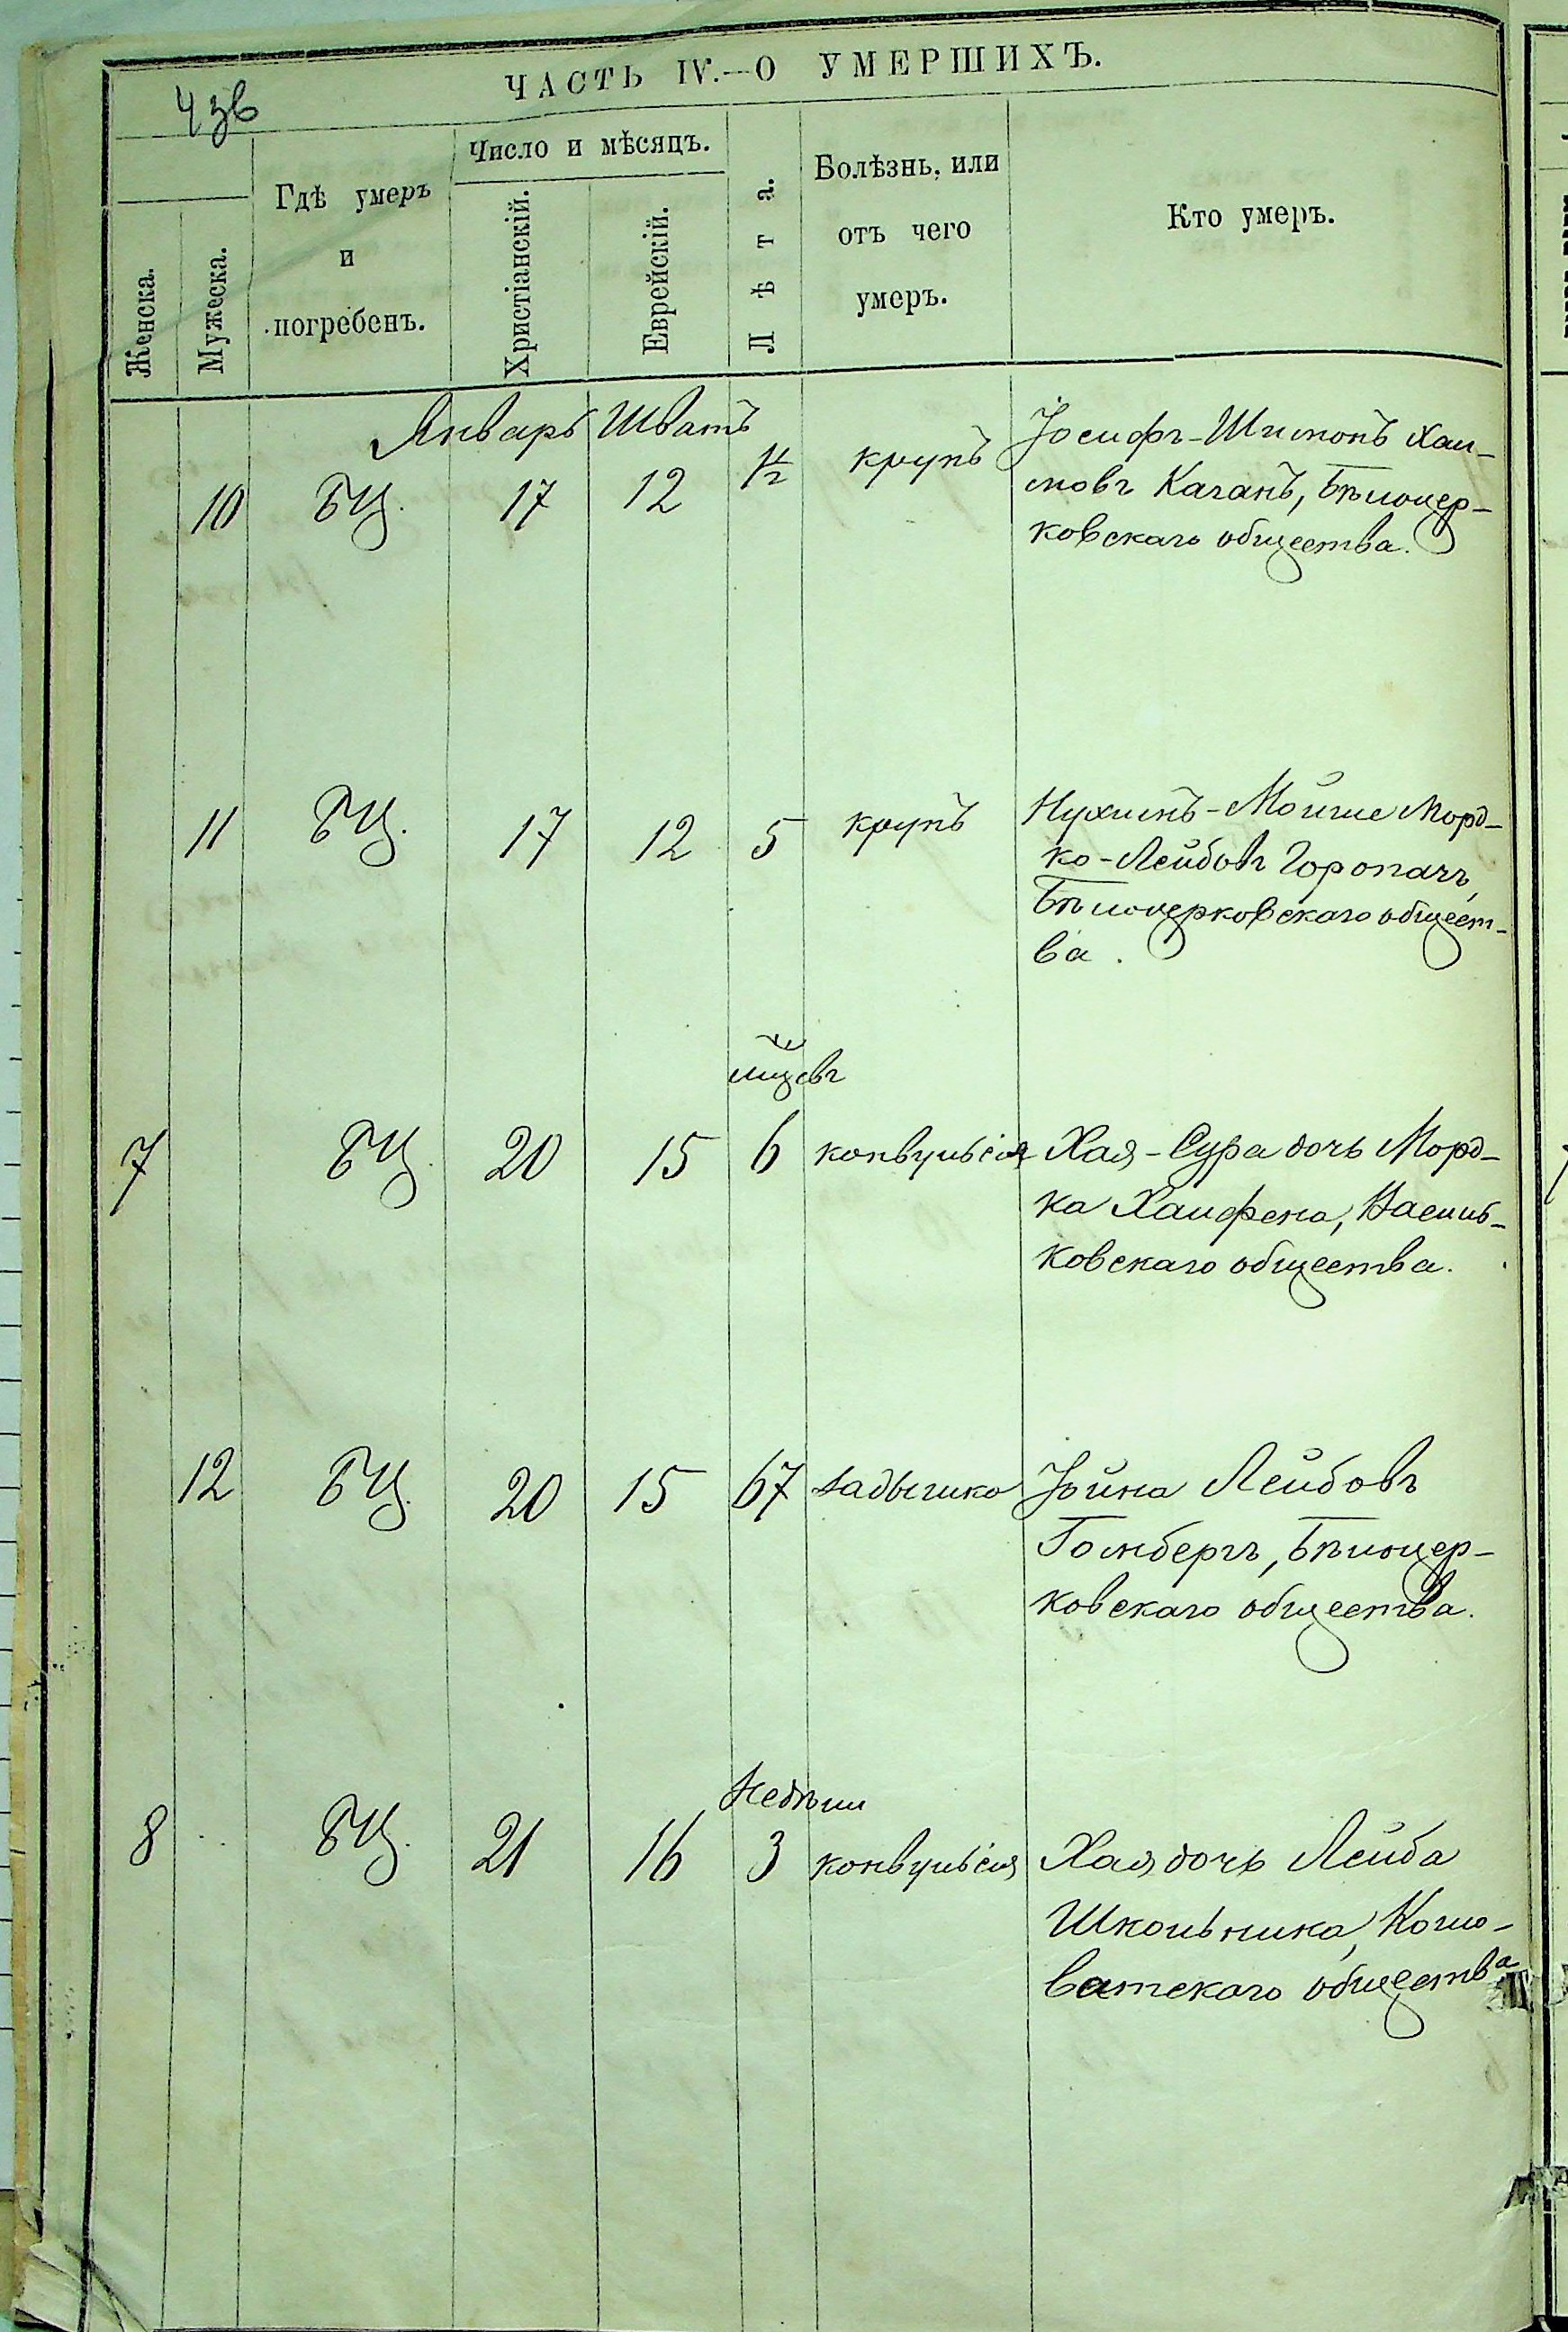 ЧАСТЬ IV.—О УМЕРШИХЪ.
Женска.
Мужеска.
Гдѣ умеръ
и
погребенъ.
Число и мѣсяцъ.
Христіанскій.
Еврейскій.
Лѣта.
Болѣзнь, или
отъ чего
умеръ.
Кто умеръ.
Январь Шватъ
10 БЦ. 17 12 ½ крупъ Іосифъ-Шимонъ Хаи-
мовъ Каганъ, Бѣлоцер-
ковскаго общества.
11 БЦ. 17 12 5 крупъ Нухимъ-Мойше Морд-
ко-Лейбовъ Горопачъ,
Бѣлоцерковскаго общест-
ва.
7 БЦ. 20 15 6 конвульсія Хая-Сура дочь Морд-
ка Хаифена, Василь-
ковскаго общества.
12 БЦ. 20 15 67 задышка Іойна Лейбовъ
Гомбергъ, Бѣлоцер-
ковскаго общества.
Недѣли
8 БЦ. 21 16 3 конвульсія Хая дочь Лейба
Школьника, Кошо-
ватскаго общества